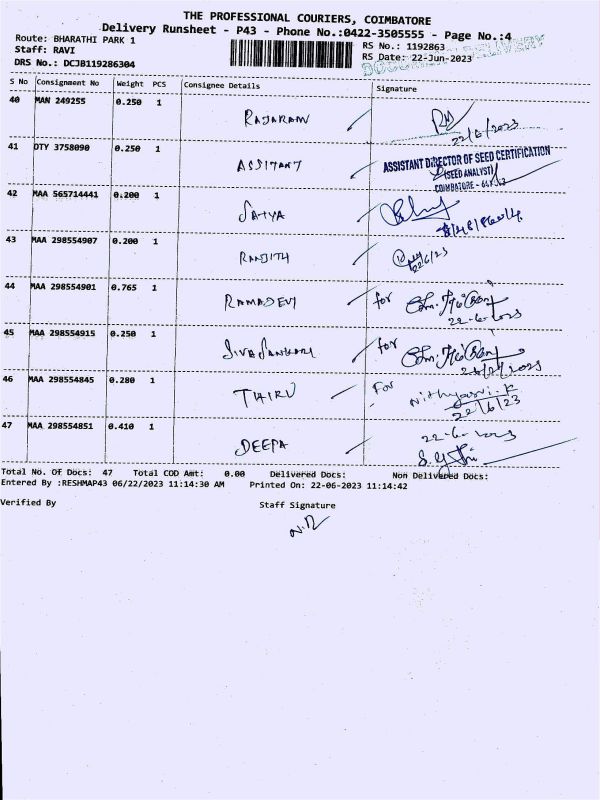 THE PROFESSIONAL COURIERS, COIMBATORE
Delivery Runsheet - P43 - Phone No.:0422-3505555 - Page No.:4
Route: BHARATHI PARK 1
RS No.: 1192863
Staff: RAVI
RS Date: 22-Jun-2023
DRS No.: DCJB119286304
S No Consignment No Weight PCS Consignee Details Signature
40 MAN 249255 0.250 1 RAJARAM
22/6/2023
41 DTY 3758090 0.250 1 ASSITANT
ASSISTANT DIRECTOR OF SEED CERTIFICATION
(SEED ANALYST)
COIMBATORE -
42 MAA 565714441 0.200 1 SATYA
43 MAA 298554907 0.200 1 RANJITH
22/6/23
44 MAA 298554901 0.765 1 RAMADEVI for
22-6-2023
45 MAA 298554915 0.250 1 SIVASANKARI for
46 MAA 298554845 0.280 1 THIRU For
22/6/23
47 MAA 298554851 0.410 1 DEEPA 22-6-2023
Total No. Of Docs: 47 Total COD Amt: 0.00 Delivered Docs: Non Delivered Docs:
Entered By :RESHMAP43 06/22/2023 11:14:30 AM Printed On: 22-06-2023 11:14:42
Verified By Staff Signature